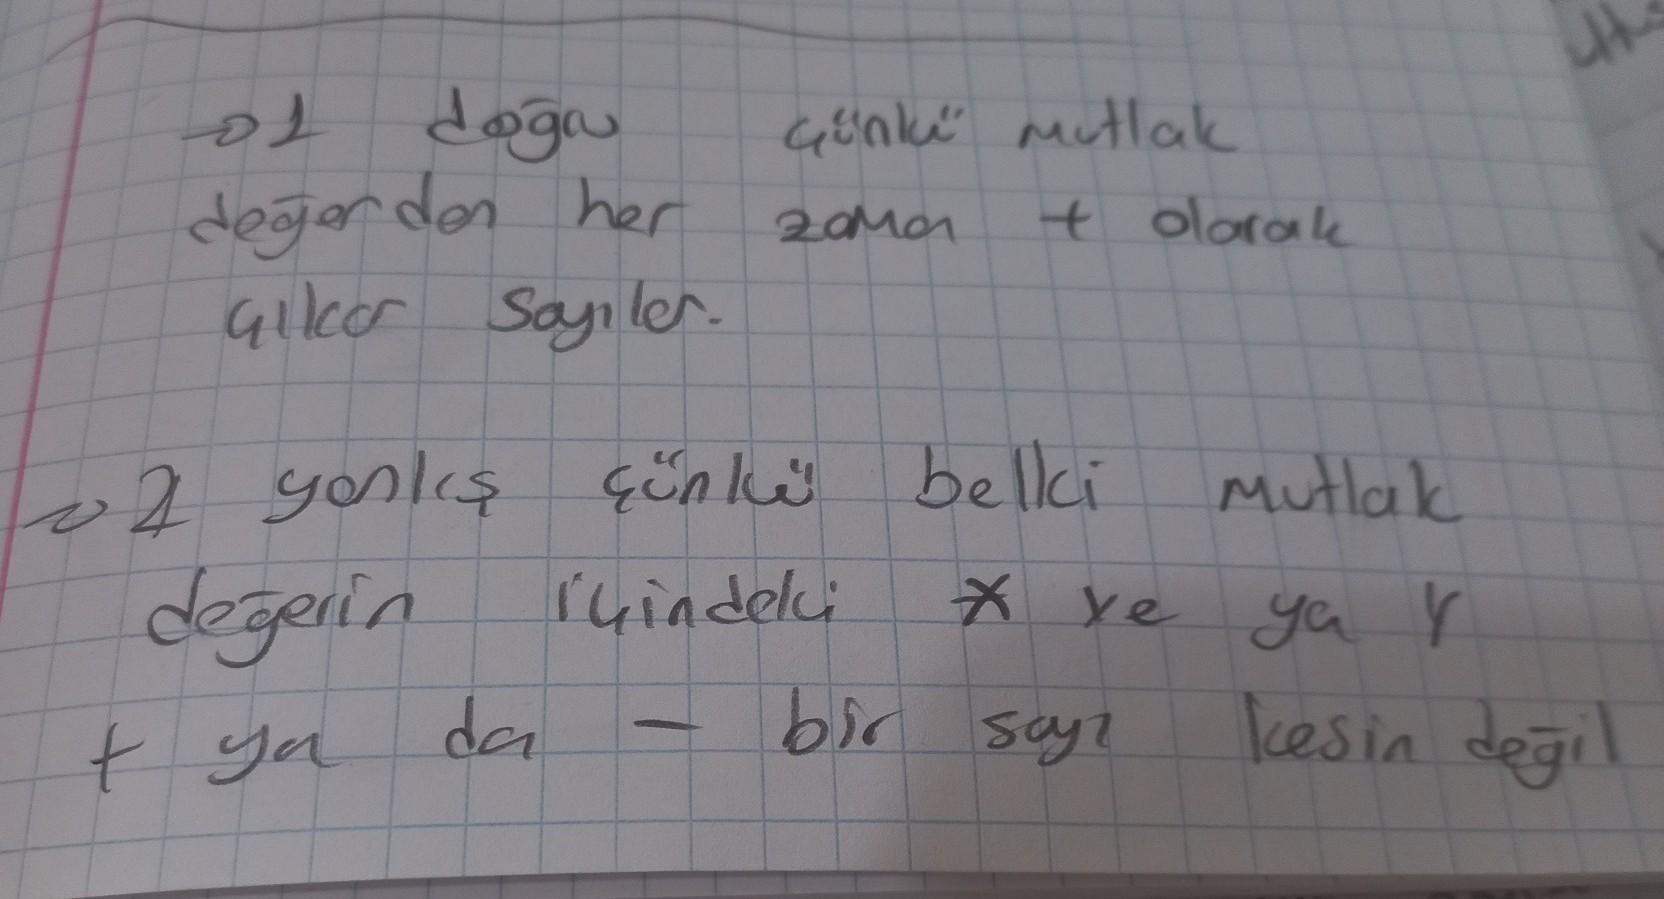 → 1 doğru çünkü mutlak
değerden her zaman + olarak
çıkar sayılar.
→ 2 yanlış çünkü belki mutlak
değerin içindeki x ve ya y
+ ya da - bir sayı kesin değil